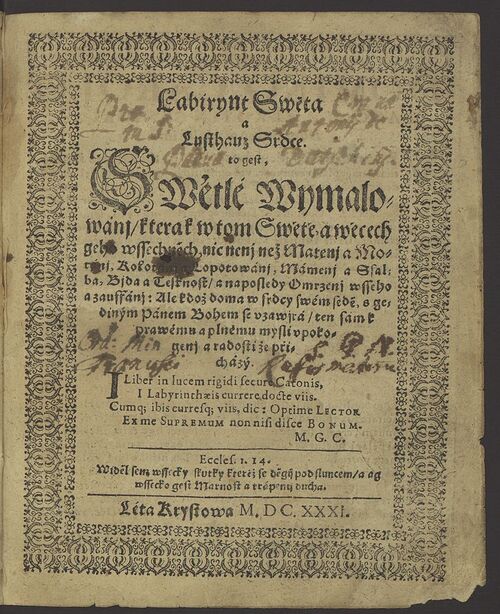 Labirynt Swěta
a
Lusthauz Srdce.
to gest,
Swětlé Wymalo-
wánj/ kterak w tom Swětě, a wěcech
geho wssechněch, nic nenj než Matenj a Mo-
Kolotánj a Lopotowánj, Mámenj a Ssal-
ba, Bjda a Tesknost/ a naposledy Omrzenj wsseho
a zauffánj: Ale kdož doma w srdcy swém sedě, s ge-
diným Pánem Bohem se vzawjrá/ ten sám k
prawému a plnému mysli vpoko-
genj a radosti že při-
cházý.
I Liber in lucem rigidi secure Catonis,
I Labyrinthæis currere, docte viis.
Cumq; ibis curresq; viis, dic: Optime LECTOR
Ex me SUPREMUM non nisi disce BONUM.
M. G. C.
Eccles. 1. 14.
Widěl sem wssecky skutky kteréž se děgij pod sluncem/ a ag
wssecko gest Marnost a trápenij ducha.
Léta Krystowa M. DC. XXXI.